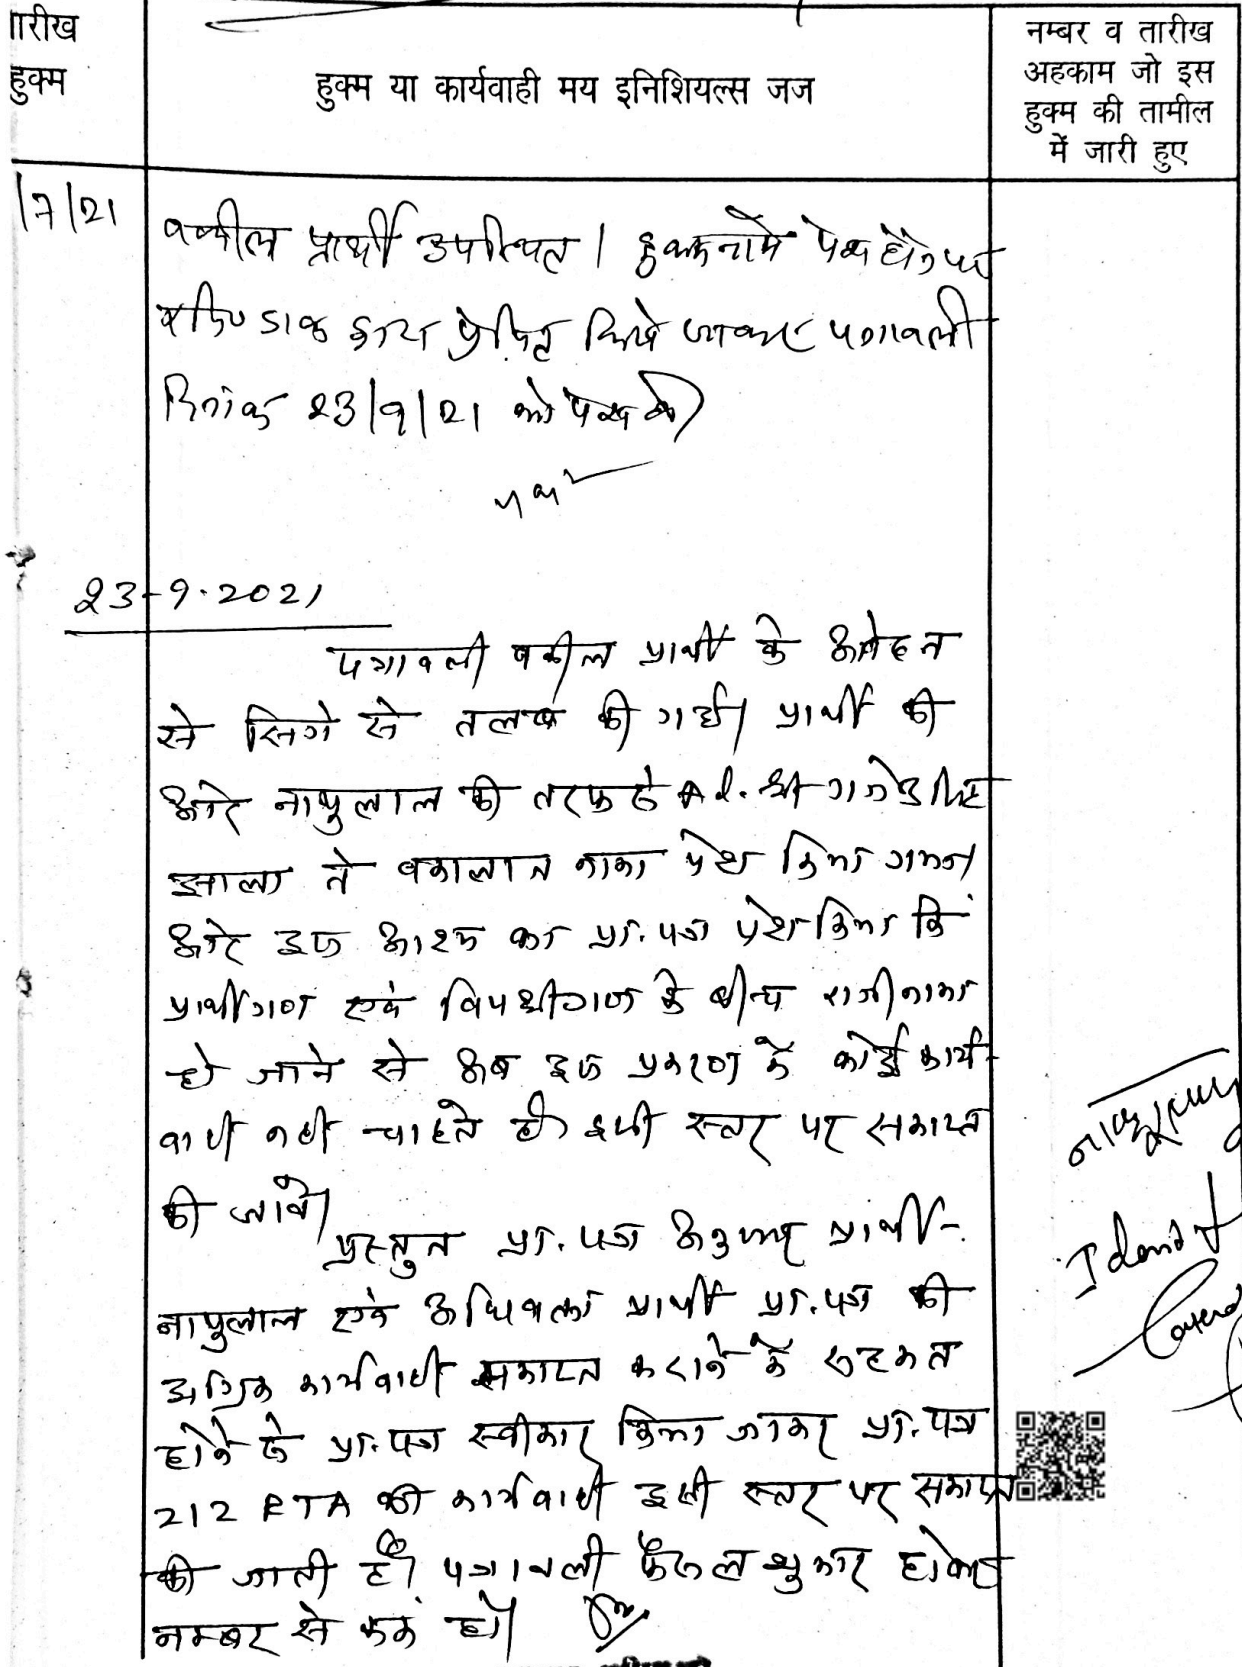 तारीख
हुक्म
हुक्म या कार्यवाही मय इनिशियल्स जज
नम्बर व तारीख
अहकाम जो इस
हुक्म की तामील
में जारी हुए
/7/21
वकील प्रार्थी उपस्थित। हुकमनामे पेश होने पर
रजि० डाक द्वारा प्रेषित किये जाकर पत्रावली
दिनांक 23/9/21 को पेश हो
23-9-2021
पत्रावली वकील प्रार्थी के आवेदन
से सिगे से तलब की गई। प्रार्थी की
ओर नाथुलाल की तरफ से Ad. श्री गजेन्द्रसिंह
झाला ने वकालात नामा पेश किया गया।
और इस आशय का प्रा. पत्र पेश किया कि
प्रार्थीगण एवं विपक्षीगण के बीच राजीनामा
हो जाने से अब इस प्रकरण में कोई कार्य-
वाही नहीं चाहते है। इसी स्तर पर समाप्त
की जावे।
प्रस्तुत प्रा. पत्र अनुसार प्रार्थी-
नाथुलाल एवं अधिवक्ता प्रार्थी प्रा. पत्र की
अग्रिम कार्यवाही समाप्त कराने में सहमत
होने से प्रा. पत्र स्वीकार किया जाकर प्रा. पत्र
212 RTA की कार्यवाही इसी स्तर पर समाप्त
की जाती है। पत्रावली फैसल शुमार होकर
नम्बर से कम हो।
नाथुलाल